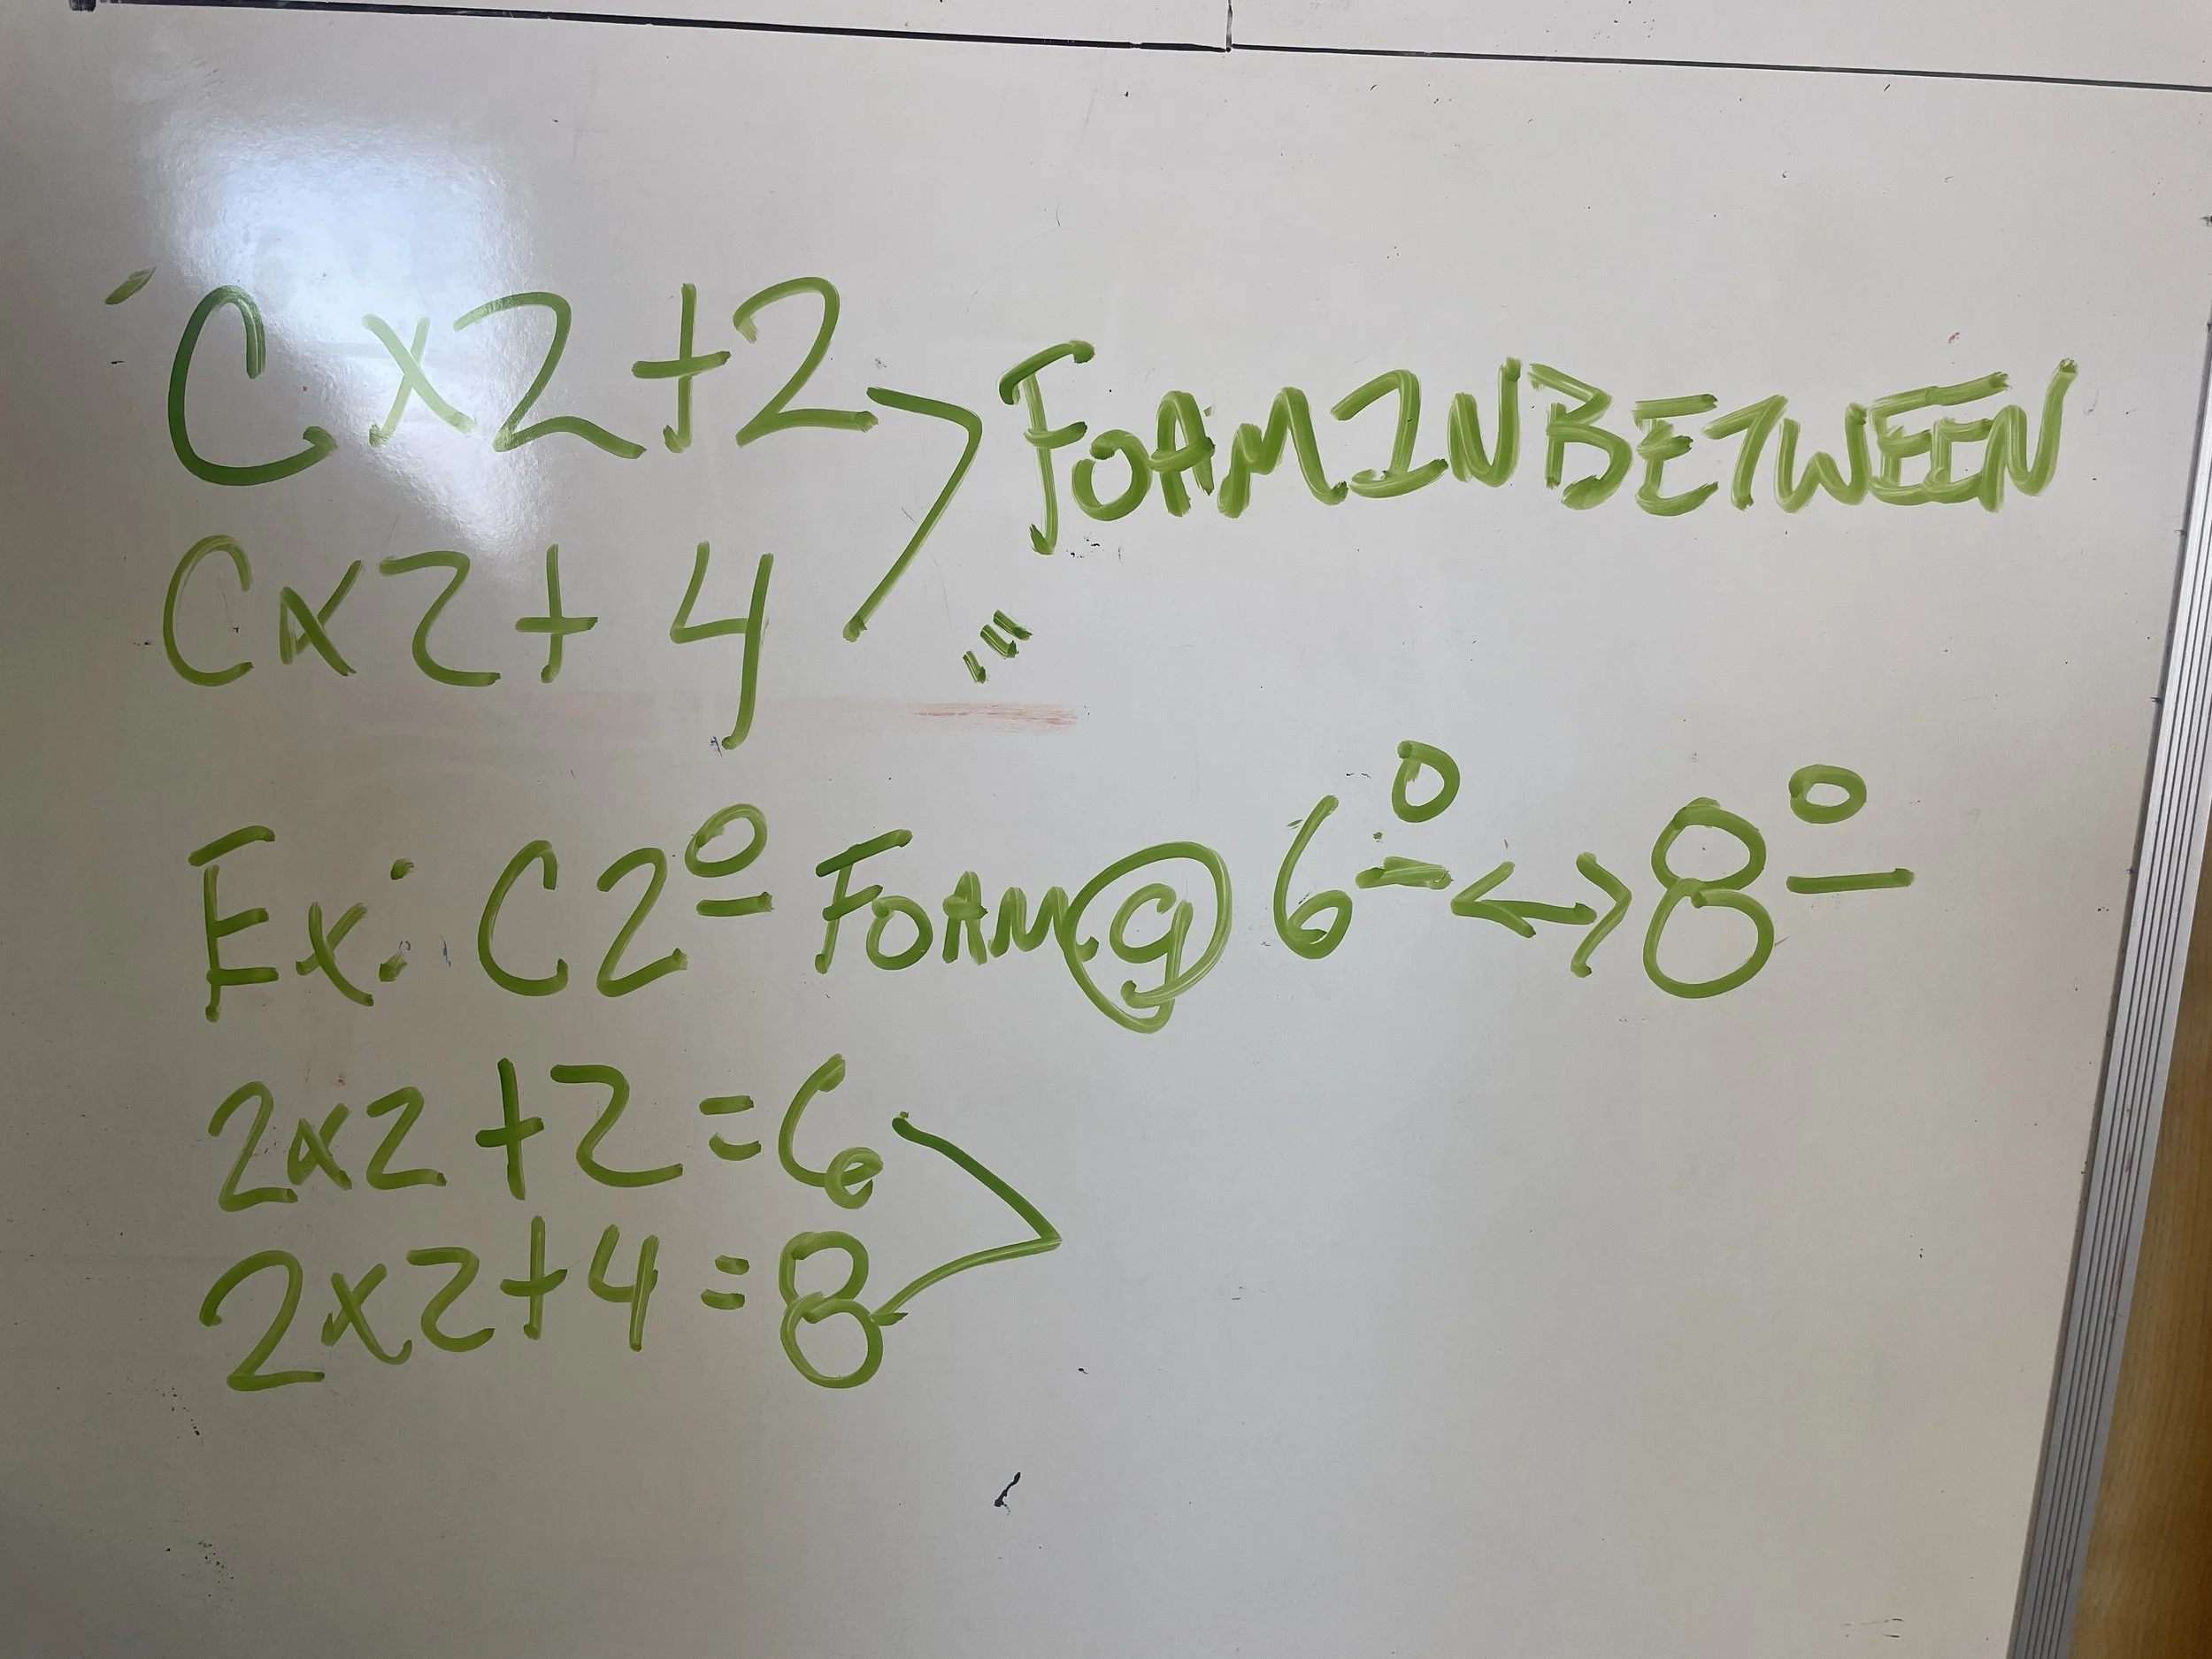 C x2+2
FOAM INBETWEEN
Cx2+ 4
Ex: C2º FOAM @ 6º <-> 8º
2x2 +2 = 6
2x2+4 = 8